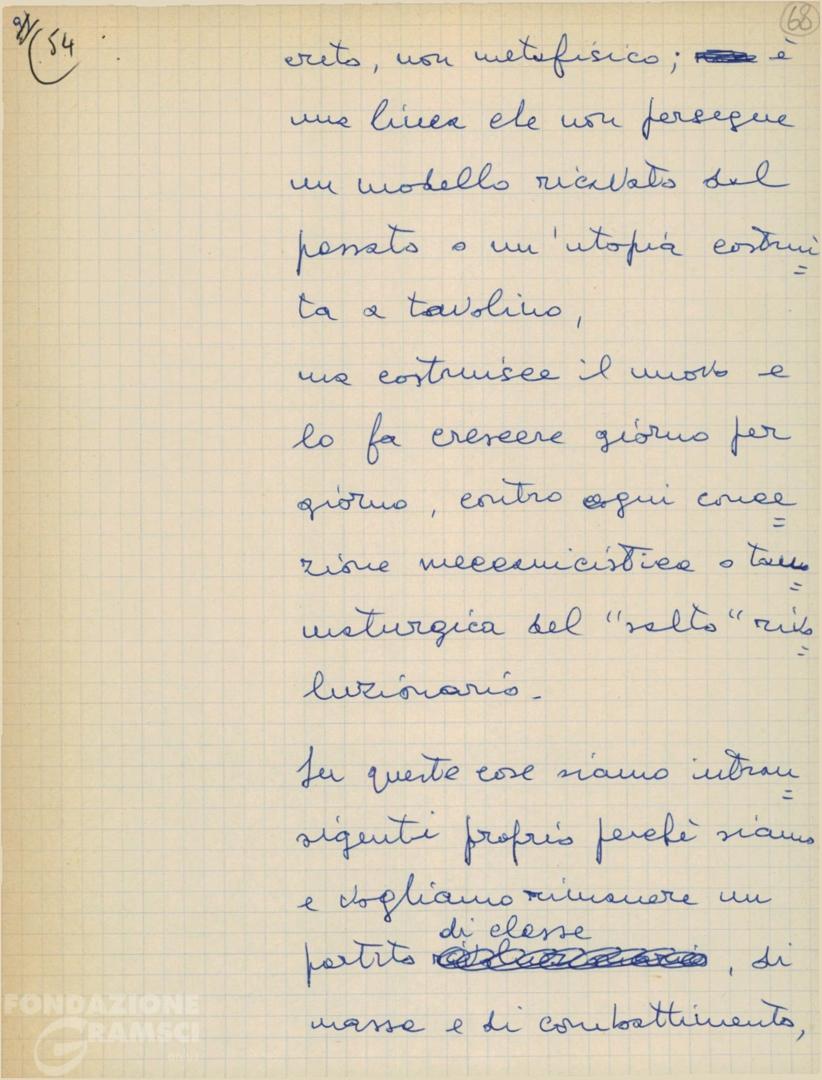 68
54
creto, non metafisico; è
una linea che non persegue
un modello ricavato dal
passato o un'utopia costrui=
ta a tavolino,
ma costruisce il nuovo e
lo fa crescere giorno per
giorno, contro ogni conce=
zione meccanicistica o tau=
maturgica del "salto" rivo=
luzionario.
Su queste cose siamo intran=
sigenti proprio perchè siamo
e vogliamo rimanere un
di classe
partito , di
massa e di combattimento,
FONDAZIONE
GRAMSCI